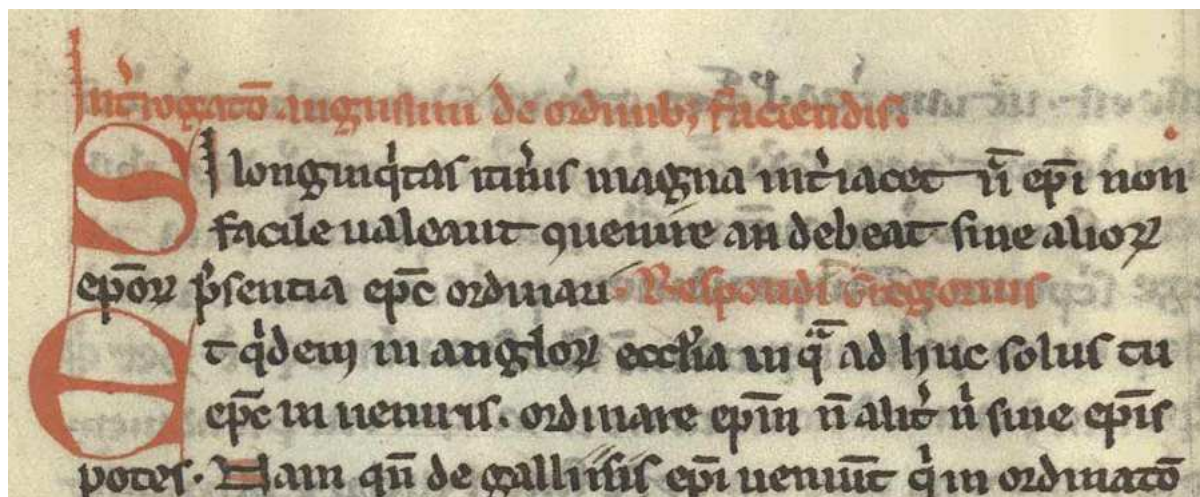 Int͛rogatō augustini de ordinib; faciendis.
SI longinq͛tas itin͛is magna int͛iacet n̄ ep̄i non
facile ualeant ꝯuenire an debeat sine alioꝝ
ep̄oꝝ p͛sentia ep̄c ordinari. Respondit Gregorius
Et q͛dem in angloꝝ eccl͛ia in qͣ ad huc solus tu
ep̄c in ueniris. ordinare ep̄m n̄ alit͛ n͛ sine ep̄is
potes. Nam qn̄ de galliis ep̄i ueniūt q͛ in ordinatō